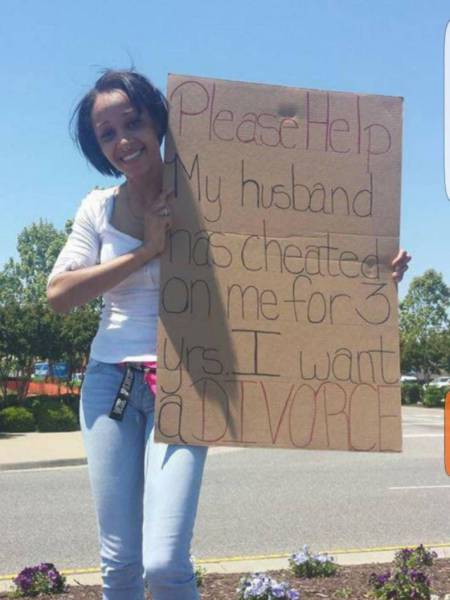 Please Help
My husband
has cheated
on me for 3
yrs. I want
a DIVORCE